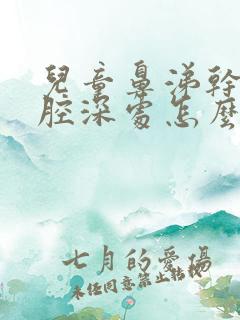 兒童鼻涕幹
腔深處怎麼
七月的愛傷
未經同意禁止轉載